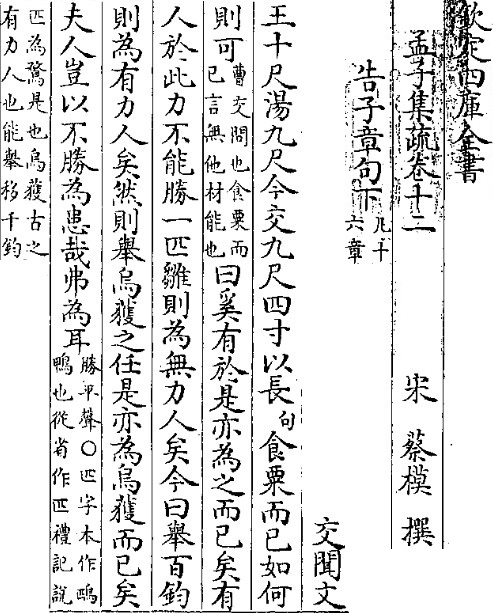 欽定四庫全書
孟子集疏卷十二
宋 蔡模 撰
告子章句下凡十六章
交聞文
王十尺湯九尺今交九尺四寸以長句食粟而已如何
則可曹交問也食粟而已言無他材能也曰奚有於是亦為之而已矣有
人於此力不能勝一匹雛則為無力人矣今曰舉百鈞
則為有力人矣然則舉烏獲之任是亦為烏獲而已矣
夫人豈以不勝為患哉弗為耳勝平聲○匹字本作鴄鴨也從省作匹禮記說
匹為鶩是也烏獲古之有力人也能舉移千鈞